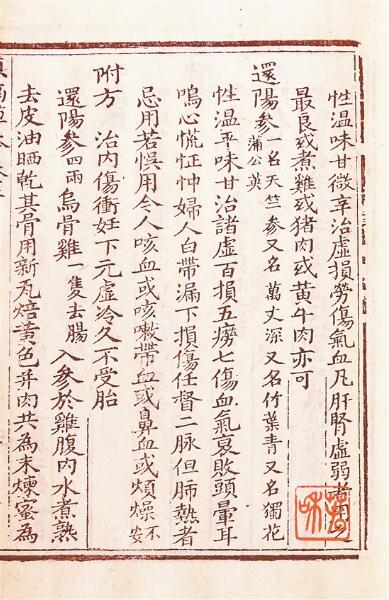 性温味甘微辛治虚損勞傷氣血凡肝腎虚弱者用之
最良或煮雞或猪肉或黄牛肉亦可
還陽參一名天竺參又名萬丈深又名竹葉青又名獨花蒲公英
性温平味甘治諸虚百損五癆七傷血氣衰敗頭暈耳
鳴心慌怔忡婦人白帶漏下損傷任督二脉但肺熱者
忌用若悮用令人咳血或咳嗽帶血或鼻血或煩燥不安
附方 治内傷衝妊下元虚冷久不受胎
還陽參四兩烏骨雞一隻去腸入參於雞腹内水煮熟
去皮油晒乾其骨用新瓦焙黄色并肉共為末煉蜜為